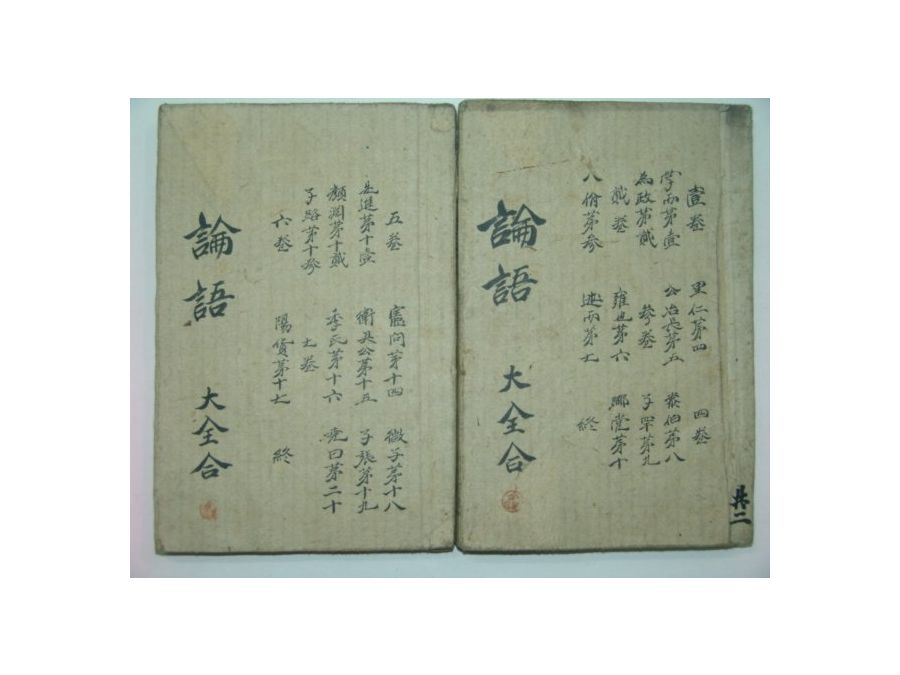 壹卷
學而第壹
為政第貳
貳卷
八佾第參
里仁第四
公冶長第五
參卷
雍也第六
述而第七
四卷
泰伯第八
子罕第九
鄉堂第十
終
論語
大全合
共二
五卷
先進第十壹
顏淵第十貳
子路第十參
六卷
憲问第十四
衛灵公第十五
季氏第十六
七卷
陽貨第十七
微子第十八
子張第十九
堯曰第二十
終
論語
大全合